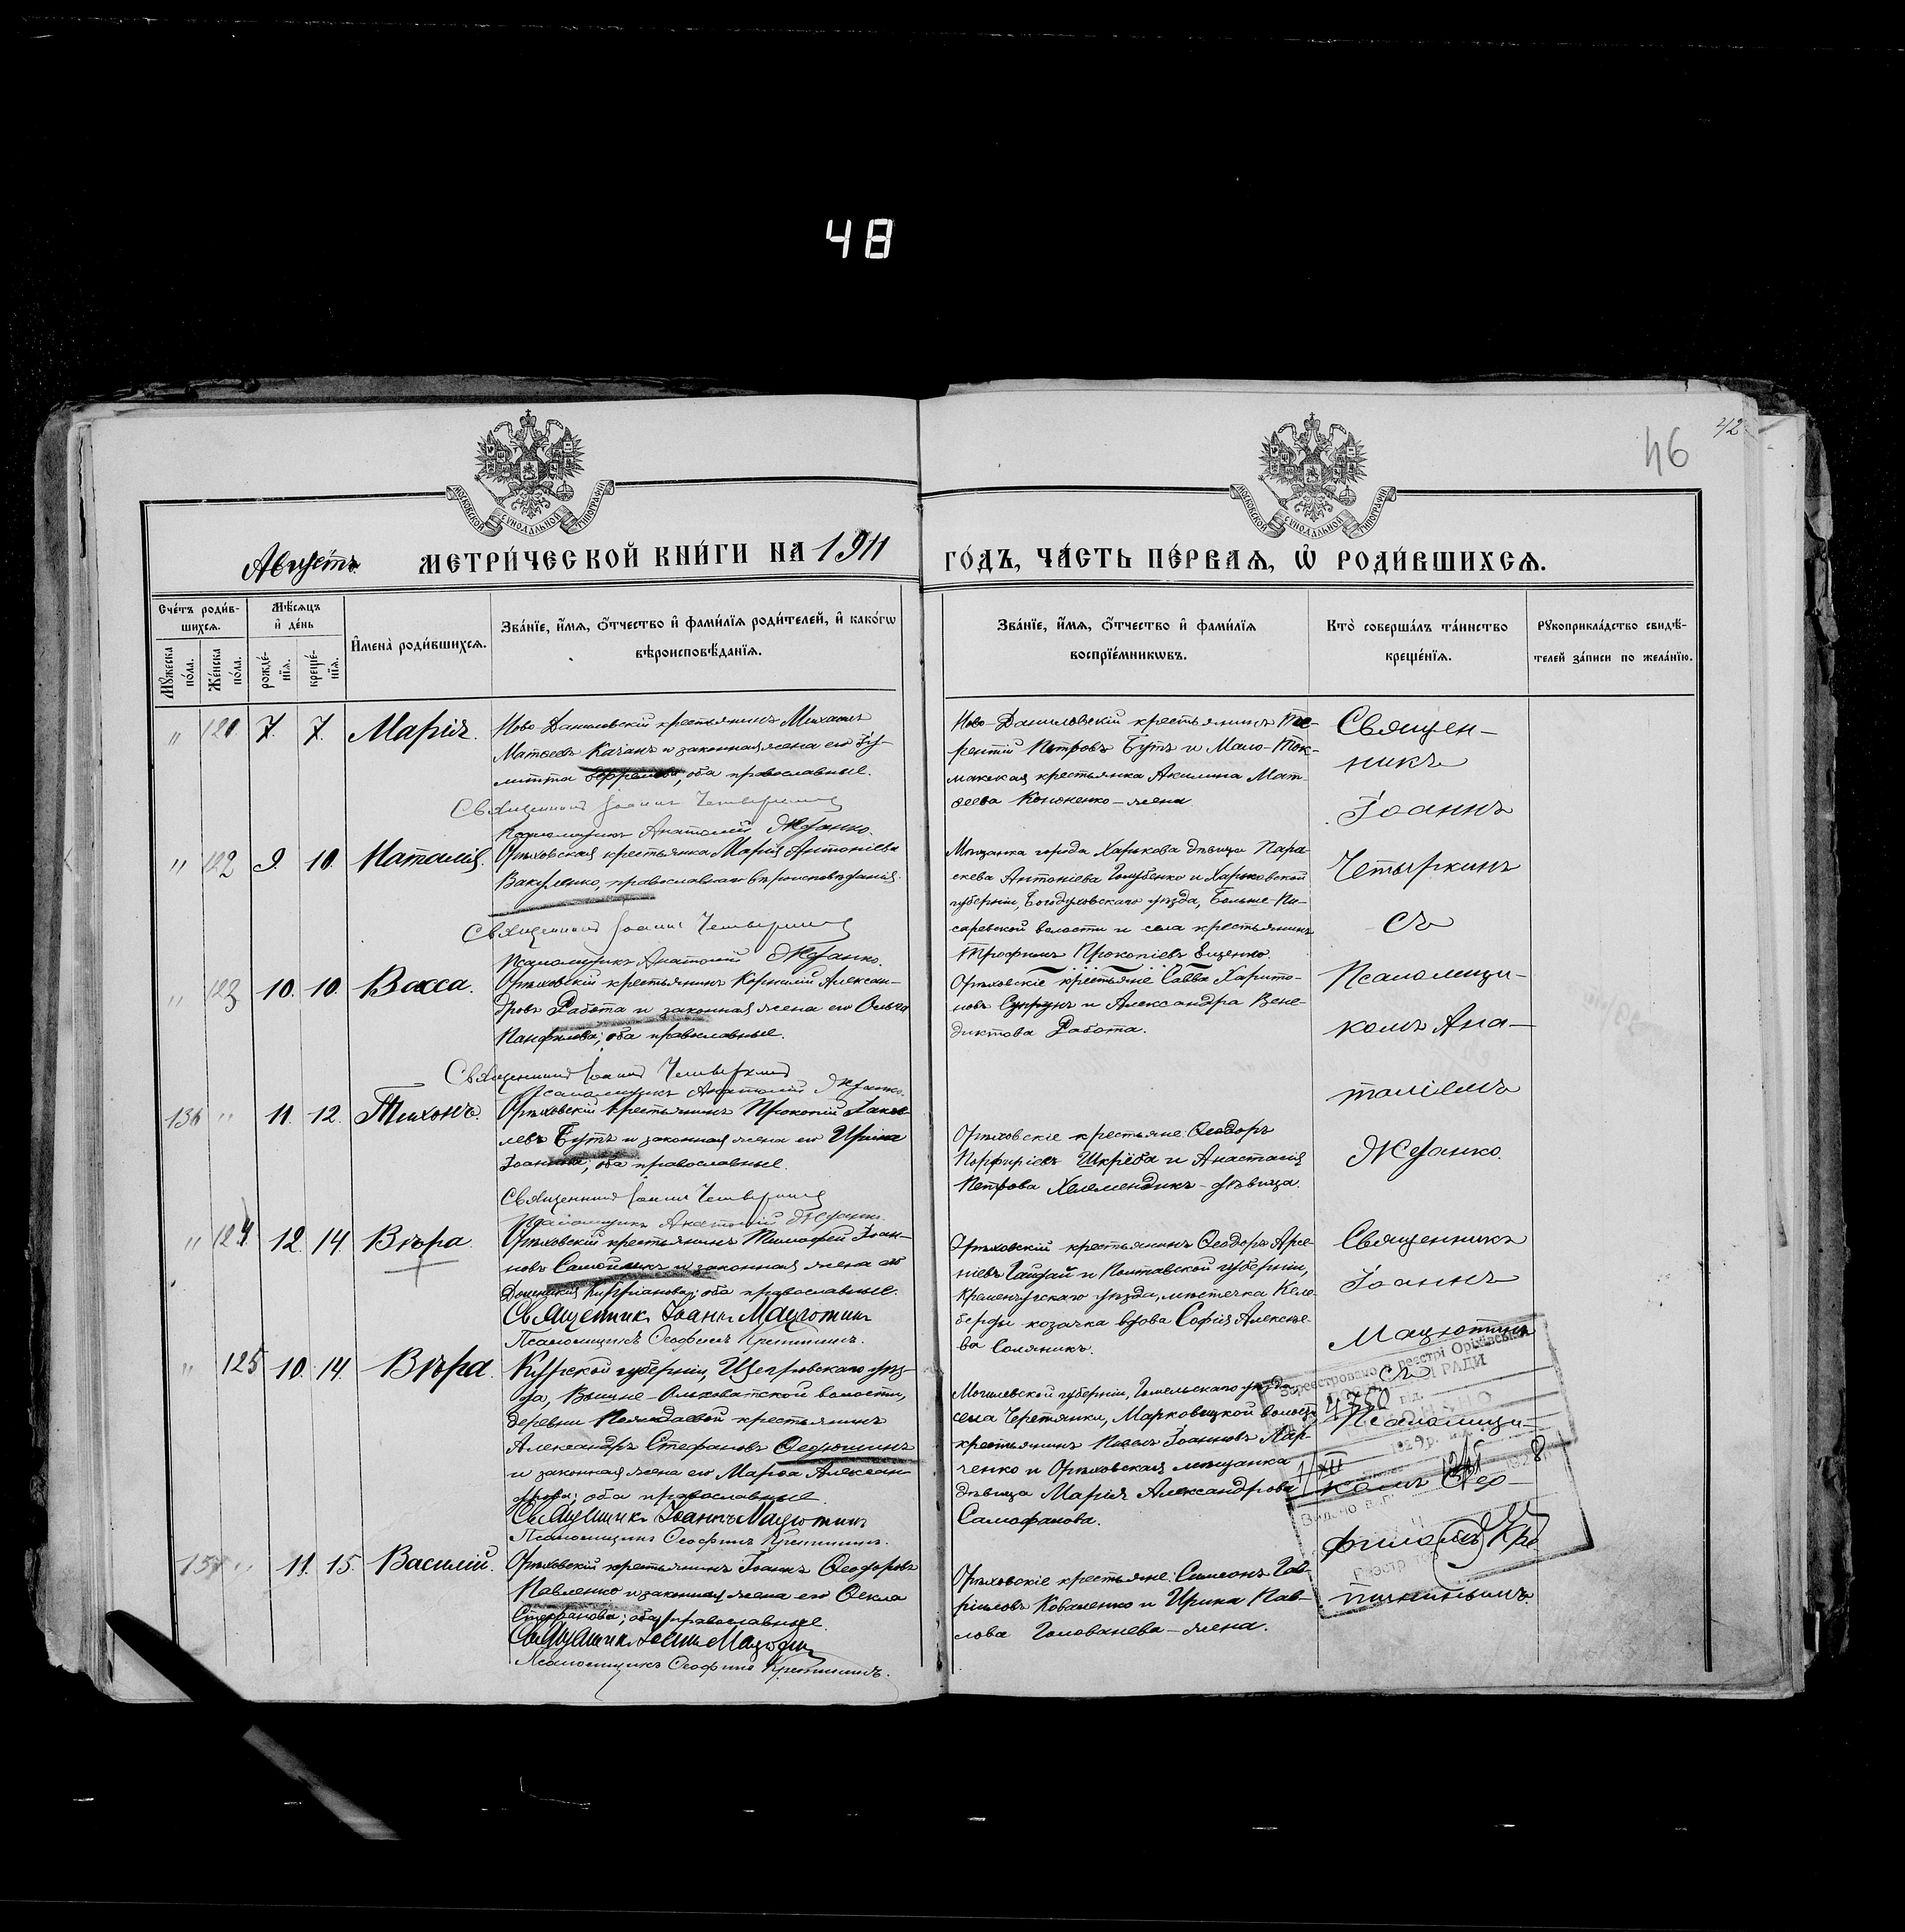 48
42
46
МОСКОВСКОЙ СУНОДАЛЬНОЙ ТИПОГРАФІИ
МОСКОВСКОЙ СУНОДАЛЬНОЙ ТИПОГРАФІИ
Августъ МЕТРИ́ЧЕСКОЙ КНИ́ГИ НА 1911 ГО́ДЪ, ЧА́СТЬ ПЕ́РВАѦ, Ѡ҆ РОДИ́ВШИХСѦ.
Счéтъ роди́в-
шихсѧ.
Мѹ́жеска по́ла.
Же́нска по́ла.
Мѣ́сѧцъ
и҆ де́нь
рожде́-
нїѧ.
креще́-
нїѧ.
И҆мена̀ роди́вшихсѧ.
Зва́нїе, и҆́мѧ, ѻ҆́тчество и҆ фами́лїѧ роди́телей, и҆ како́гѡ
вѣроисповѣ́данїѧ.
Зва́нїе, и҆́мѧ, ѻ҆́тчество и҆ фами́лїѧ
воспрїе́мникѡвъ.
Кто̀ соверша́лъ та́инство
креще́нїѧ.
Рꙋкоприкла́дство свидѣ́-
телей за́писи по жела́нїю.
" 121 7. 7. Марія.
Ново-Даниловскій крестьянинъ Михаилъ
Матѳеевъ Качанъ и законная жена его Іу-
литта; оба православные.
Священникъ Іоаннъ Четыркинъ
Псаломщикъ Анатолій Жданко.
Ново-Даниловскій крестьянинъ Те-
рентій Петровъ Бутъ и Мало-Ток-
макская крестьянка Акилина Мат-
ѳеева Кононенко-жена.
" 122 9. 10. Наталія.
Орѣховская крестьянка Марія Антоніева
Вакуленко, православнаго вѣроисповѣданія.
Священникъ Іоаннъ Четыркинъ
Псаломщикъ Анатолій Жданко.
Мѣщанка города Харькова дѣвица Пара-
скева Антоніева Голубенко и Харьковской
губерніи, Богодуховскаго уѣзда, Больше-Пи-
саревской волости и села крестьянинъ
Трофимъ Прокопіевъ Ященко.
" 123 10. 10. Васса.
Орѣховскій крестьянинъ Корнилій Алексан-
дровъ Работа и законная жена его Ольга
Панфилова; оба православные.
Священникъ Іоаннъ Четыркинъ
Псаломщикъ Анатолій Жданко.
Орѣховскіе крестьяне Савва Харито-
новъ Супрунъ и Александра Вене-
диктова Работа.
136 " 11. 12. Тихонъ.
Орѣховскій крестьянинъ Прокопій Іаков-
левъ Бутъ и законная жена его Ирина
Іоаннова; оба православные.
Священникъ Іоаннъ Четыркинъ
Псаломщикъ Анатолій Жданко.
Орѣховскіе крестьяне Ѳеодоръ
Порфиріевъ Шкрёба и Анастасія
Петрова Келемендикъ-дѣвица.
Священ-
никъ
Іоаннъ
Четыркинъ
съ
Псаломщи-
комъ Ана-
толіемъ
Жданко.
" 124 12. 14. Вѣра.
Орѣховскій крестьянинъ Тимофей Іоан-
новъ Самойликъ и законная жена его
Домникія Кипріанова; оба православные.
Священникъ Іоаннъ Мацютинъ
Псаломщикъ Ѳеофилъ
Орѣховскій крестьянинъ Ѳеодоръ Арсе-
ніевъ Гайдай и Полтавской губерніи,
Кременчугскаго уѣзда, мѣстечка Келе-
берды козачка вдова Софія Алексѣе-
ва Соляникъ.
" 125 10. 14. Вѣра.
Курской губерніи, Щегровскаго уѣз-
да, Вышне-Ольховатской волости,
деревни крестьянинъ
Александръ Стефановъ Ѳедюшинъ
и законная жена его Марѳа Алексан-
дрова; оба православные.
Священникъ Іоаннъ Мацютинъ
Псаломщикъ Ѳеофилъ
Могилевской губерніи, Гомельскаго уѣзда
села Черетянки, Марковицкой волости
крестьянинъ Павелъ Іоанновъ Мар-
ченко и Орѣховская мѣщанка
дѣвица Марія Александрова
Самофалова.
137 " 11. 15. Василій.
Орѣховскій крестьянинъ Іоаннъ Ѳеодоровъ
Павленко и законная жена его Ѳекла
Стефанова; оба православные.
Священникъ Іоаннъ Мацютинъ
Псаломщикъ Ѳеофилъ
Орѣховскіе крестьяне: Симеонъ Гав-
ріиловъ Коваленко и Ирина Пав-
лова Голованева-жена.
Священникъ
Іоаннъ
Мацютинъ
съ
Псаломщи-
комъ
Зареєстровано в реєстрі Оріхівської
РАДИ
4750